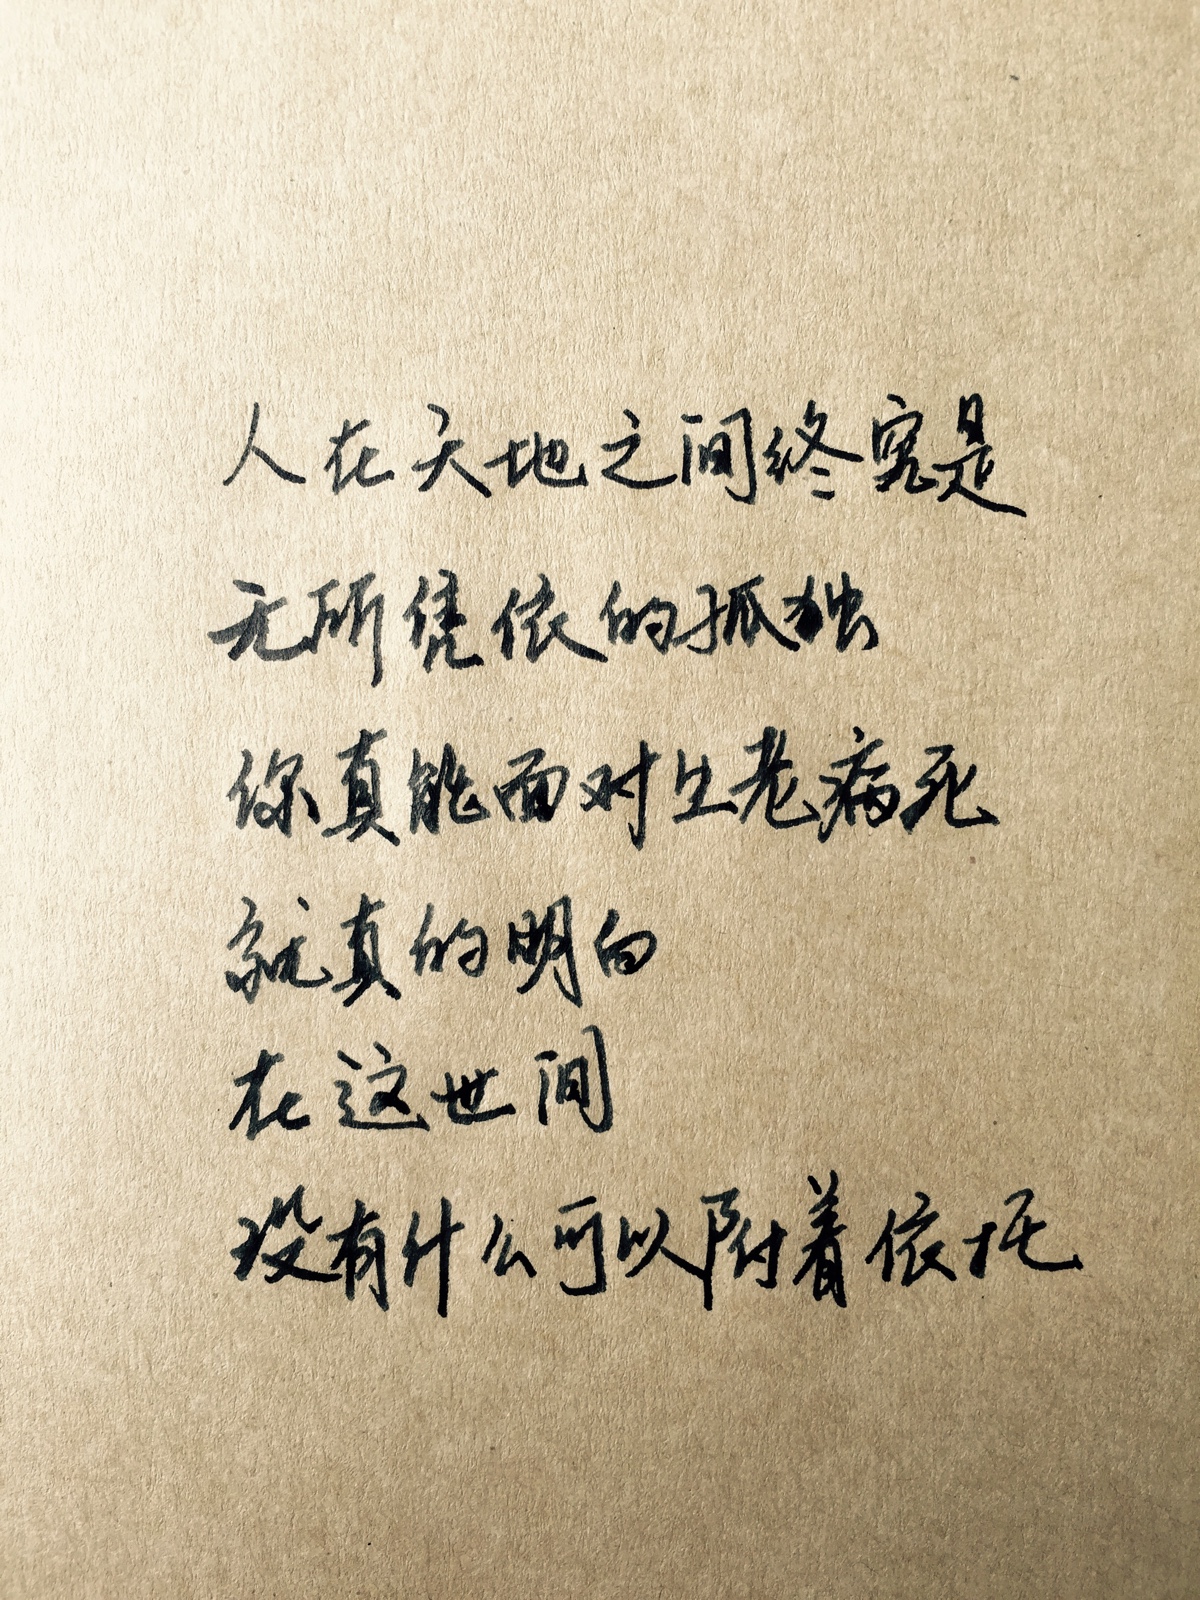 人在天地之间终究是
无所凭依的孤独
你真能面对生老病死
就真的明白
在这世间
没有什么可以附着依托